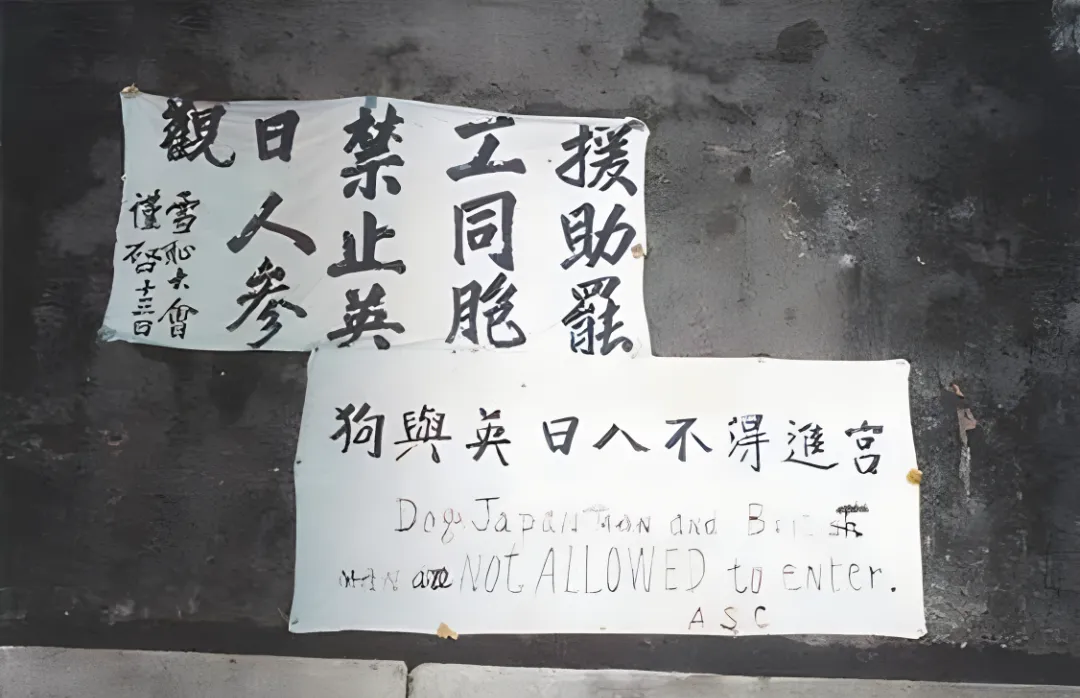 援助罷
工同胞
禁止英
日人參
觀
雪恥大會
謹啓十三日
狗與英日人不得進宮
Dogs, Japanman and British
man are NOT ALLOWED to enter.
ASC